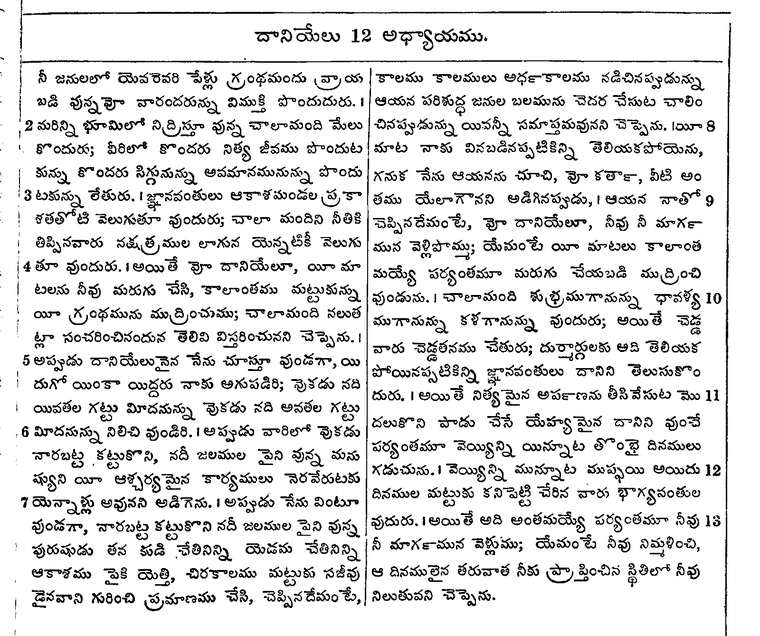 దానియేలు 12 అధ్యాయము.
నీ జనులలో యెవరెవరి పేళ్లు గ్రంథమందు వ్రాయ
బడి వున్నవో వారందరున్ను విముక్తి పొందుదురు. ।
2 మరిన్ని భూమిలో నిద్రిస్తూ వున్న చాలామంది మేలు
కొందురు; వీరిలో కొందరు నిత్య జీవము పొందుట
కున్ను కొందరు సిగ్గునున్ను అవమానమునున్ను పొందు
3 టకున్ను లేతురు. । జ్ఞానవంతులు ఆకాశమండల ప్రకా
శతతోటి వెలుగుతూ వుందురు; చాలా మందిని నీతికి
తిప్పినవారు నక్షత్రముల లాగున యెన్నటికీ వెలుగు
4 తూ వుందురు. । అయితే వో దానియేలూ, యీ మా
టలను నీవు మరుగు చేసి, కాలాంతము మట్టుకున్ను
యీ గ్రంథమును ముద్రించుము; చాలామంది నలుత
ట్లా సంచరించినందున తెలివి విస్తరించునని చెప్పెను. ।
5 అప్పుడు దానియేలునైన నేను చూస్తూ వుండగా, యి
దుగో యింకా యిద్దరు నాకు అగుపడిరి; వొకడు నది
యివతల గట్టు మీదనున్ను వొకడు నది అవతల గట్టు
6 మీదనున్ను నిలిచి వుండిరి. । అప్పుడు వారిలో వొకడు
నారబట్ట కట్టుకొని, నదీ జలముల పైని వున్న మను
ష్యుని యీ ఆశ్చర్యమైన కార్యములు నెరవేరుటకు
7 యెన్నాళ్లు అవునని అడిగెను. । అప్పుడు నేను వింటూ
వుండగా, నారబట్ట కట్టుకొని నదీ జలముల పైని వున్న
పురుషుడు తన కుడి చేతినిన్ని యెడమ చేతినిన్ని
ఆకాశము పైకి యెత్తి, చిరకాలము మట్టుకు సజీవు
డైనవాని గురించి ప్రమాణము చేసి, చెప్పినదేమంటే,
కాలము కాలములు అర్ధకాలము నడిచినప్పుడున్ను
ఆయన పరిశుద్ధ జనుల బలమును చెదర చేసుట చాలిం
చినప్పుడున్ను యివన్నీ సమాప్తమవునని చెప్పెను. ।యీ 8
మాట నాకు వినబడినప్పటికిన్ని తెలియకపోయెను,
గనుక నేను ఆయనను చూచి, వో కర్తా, వీటి అం
తము యేలాగౌనని అడిగినప్పుడు, । ఆయన నాతో 9
చెప్పినదేమంటే, వో దానియేలూ, నీవు నీ మార్గ
మున వెళ్లిపొమ్ము; యేమంటే యీ మాటలు కాలాంత
మయ్యే పర్యంతమూ మరుగు చేయబడి ముద్రించి
వుండును. । చాలామంది శుభ్రముగానున్ను ధావళ్య 10
ముగానున్ను కళగానున్ను వుందురు; అయితే చెడ్డ
వారు చెడ్డతనము చేతురు; దుర్మార్గులకు అది తెలియక
పోయినప్పటికిన్ని జ్ఞానవంతులు దానిని తెలుసుకొం
దురు. । అయితే నిత్యమైన అర్పణను తీసివేసుట మొ 11
దలుకొని పాడు చేసే యేహ్యమైన దానిని వుంచే
పర్యంతమూ వెయ్యిన్ని యిన్నూట తొంభై దినములు
గడుచును. । వెయ్యిన్ని మున్నూట ముప్ఫయి అయిదు 12
దినముల మట్టుకు కనిపెట్టి చేరిన వారు భాగ్యవంతుల
వుదురు. । అయితే అది అంతమయ్యే పర్యంతమూ నీవు 13
నీ మార్గమున వెళ్లుము; యేమంటే నీవు నిమ్మళించి,
ఆ దినములైన తరువాత నీకు ప్రాప్తించిన స్థితిలో నీవు
నిలుతువని చెప్పెను.